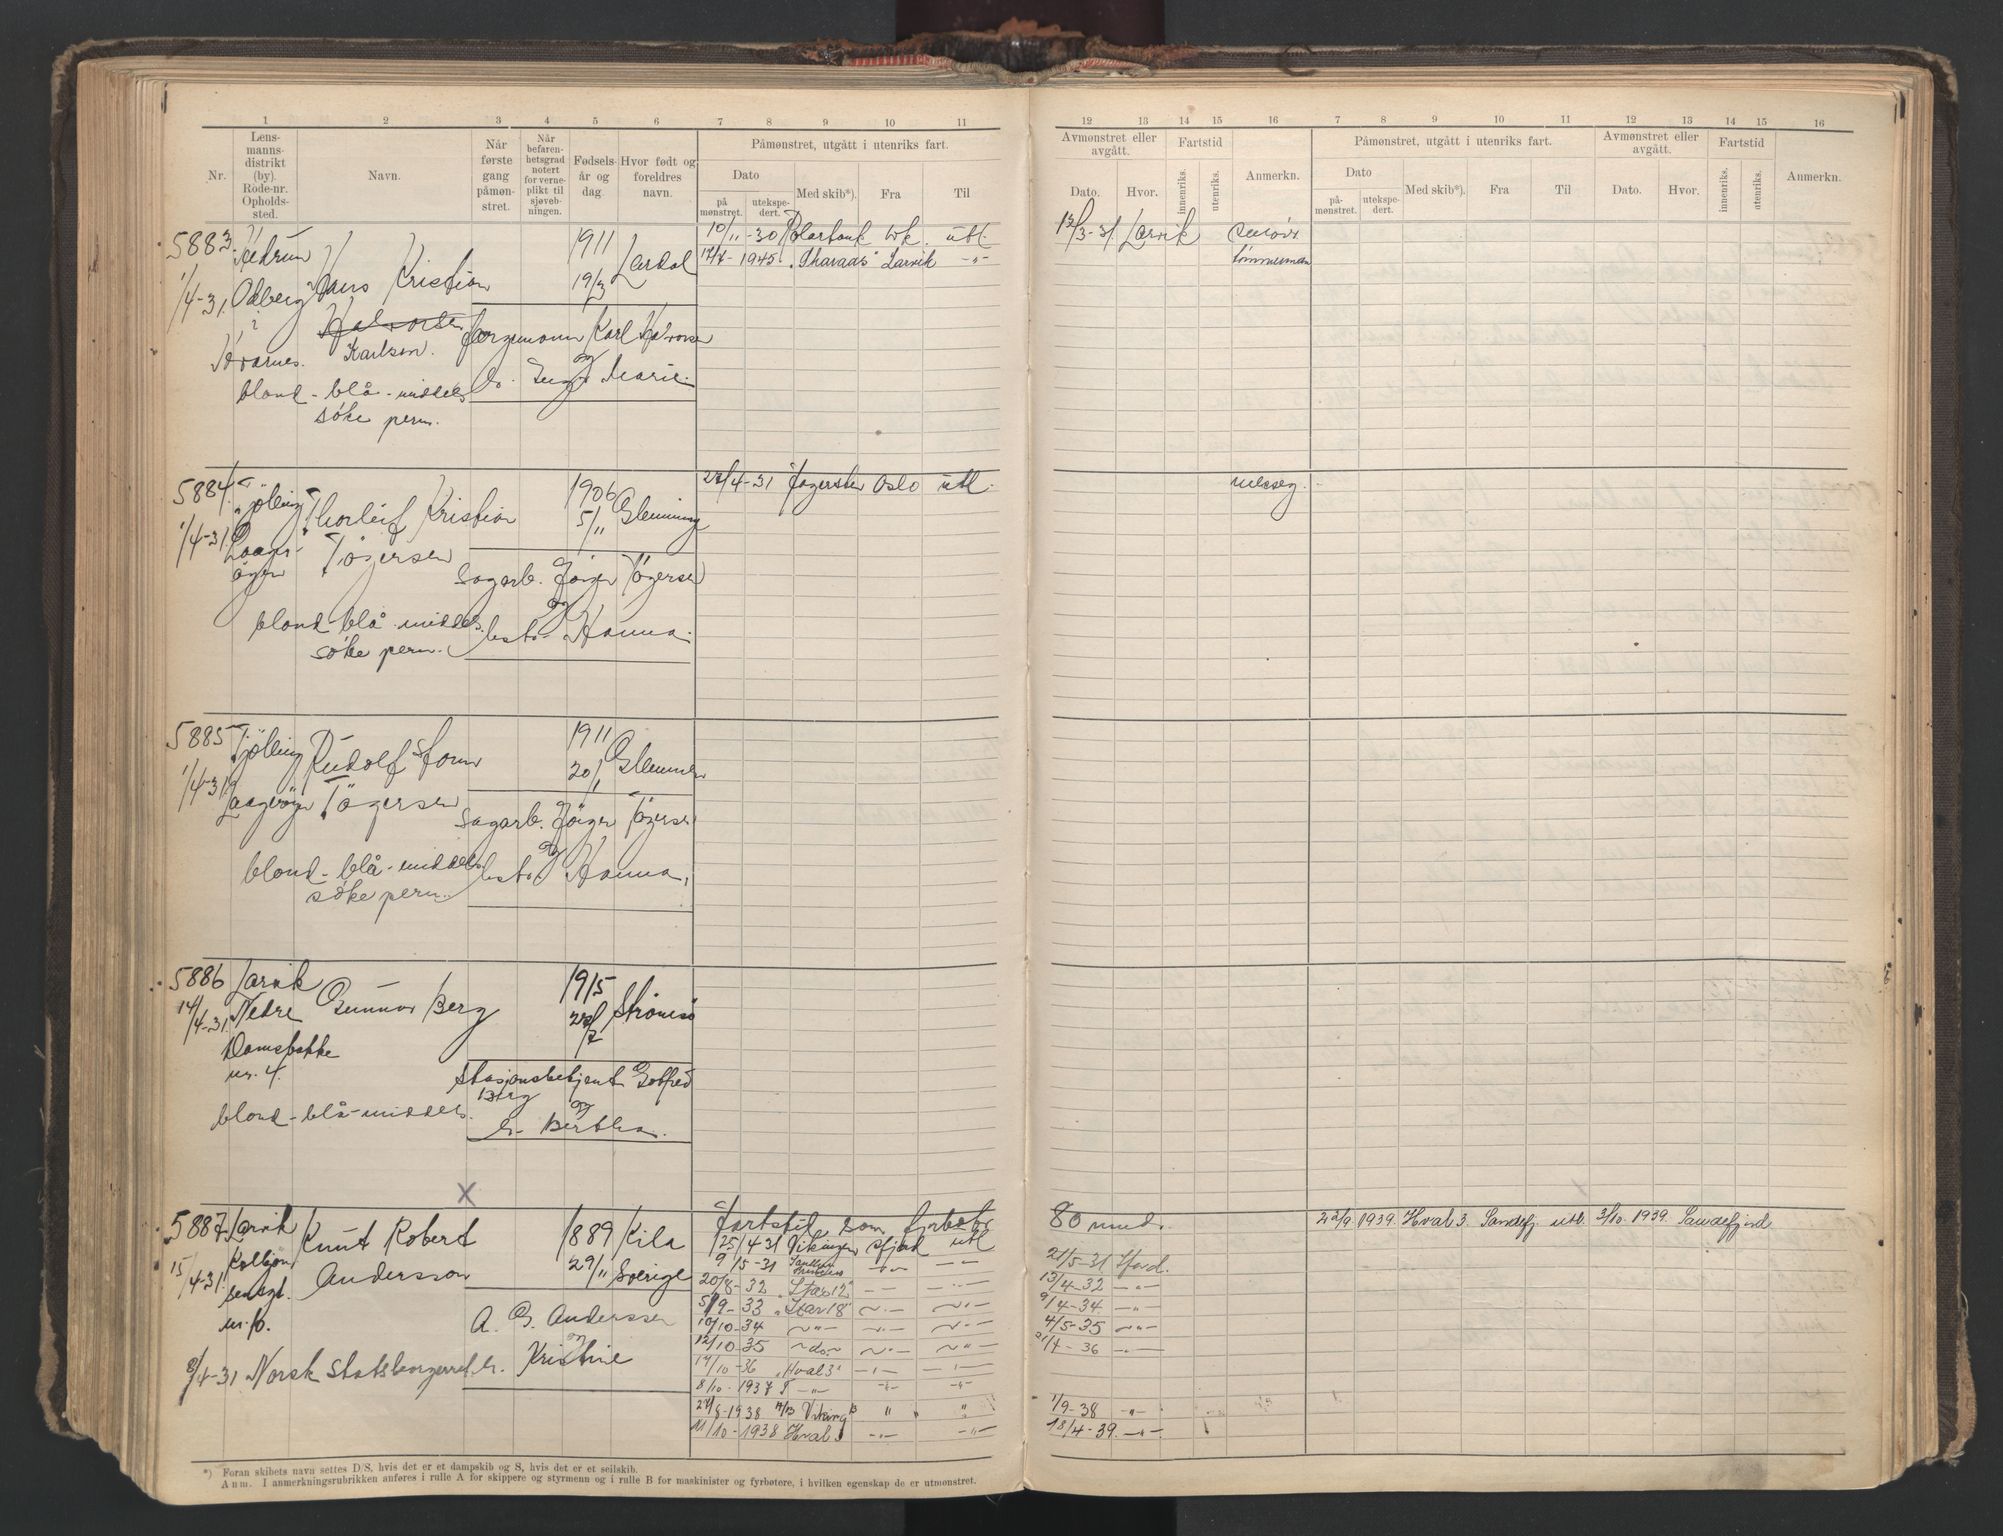 1 2 3 4 5 6 7 8 9 10 11
12 13 14 15 16 7 8 9 10 11 12 13 14 15 16
Nr.
Lens-
manns-
distrikt
(by).
Rode-nr.
Opholds-
sted.
Navn.
Når
første
gang
påmøn-
stret.
Når
befaren-
hetsgrad
notert
for verne-
plikt til
sjøveb-
ningen.
Fødsels-
år og
dag.
Hvor født og
foreldres
navn.
Påmønstret, utgått i utenriks fart.
Dato
på
mønstret.
utekspe-
dert.
Med skib*).
Fra
Til
Avmønstret eller
avgått.
Dato.
Hvor.
Fartstid
innenriks.
utenriks.
Anmerkn.
Påmønstret, utgått i utenriks fart.
Dato
på-
mønstret.
utekspe-
dert.
Med skib*).
Fra
Til
Avmønstret eller
avgått.
Dato.
Hvor.
Fartstid
innenriks.
utenriks.
Anmerkn.
5883
1/4-31.
Hedrum
Odberg
?
Kvarnes.
Hans Kristian
Halvorsen
Karlsen.
1911
19/3
Lardal
Karl Halvorsen
og
h. Inga Marie.
blond - blå - middels
søke perm.
10/11-30 Polartank Lvk. utl
17/7-1945 "Tharaas" Larvik -"-
13/3-31. Larvik
tømmermann
5884
1/4-31.
Tjølling
Laager-
øyen
Thorleif Kristian
Tøgersen
1906
5/11
Glemminge
Sagarb. Jørgen Tøgersen
og
hst. Hanna.
blond - blå - middels.
søke perm.
27/4-31 Fagersten Oslo utl.
5885
1/4-31
Tjølling
Laagerøyen
Rudolf Storm
Tøgersen
1911
20/1
Glemmen
Sagarb. Jørgen Tøgersen
og
hst. Hanna.
blond - blå - middels.
søke perm.
5886
14/4-31.
Larvik
Nedre
Damsbakke
nr. 4.
Gunnar Berg
1915
Strømsø
Stasjonsbetjent Gotfred
Berg
og
h. Bertha.
blond - blå - middels.
X
5887
15/4-31.
Larvik
Kolbjørn
sensgt.
nr. 10.
Knut Robert
Andersson
1889
29/11
Kila
Sverige
A. G. Anderssen
og
h. Kristine
8/4-31 Norsk statsborgerret.
Fartstid som fyrbøter
80 mnd.
25/4 31 Vikingen Sfjord utl
9/5-31 -"-
20/8-32 "Star 12" -"-
5/9-33 "Star 18" -"- -"-
10/10-34 -"- -"- -"-
12/10-35 -do- -"- -"-
14/10-36 "Hval 3" -"- -"-
8/10-1937 -"- -"- -"-
27/8-1938 Viking " "
11/10-1938 Hval 3 -"- -"-
21/5-31 Sfjord.
13/4-32 -"-
9/4-34 -"-
4/5-35 -"-
21/4-36 -"-
1/9-38 -"-
18/4-39. -"-
22/9 1939. Hval 3. Sandefj. utl. 3/10. 1939. Sandefjord.
*) Foran skibets navn settes D/S, hvis det er et dampskib og S, hvis det er et seilskib.
Anm. I anmerkningsrubrikken anføres i rulle A for skippere og styrmenn og i rulle B for maskinister og fyrbøtere, i hvilken egenskap de er utmønstret.